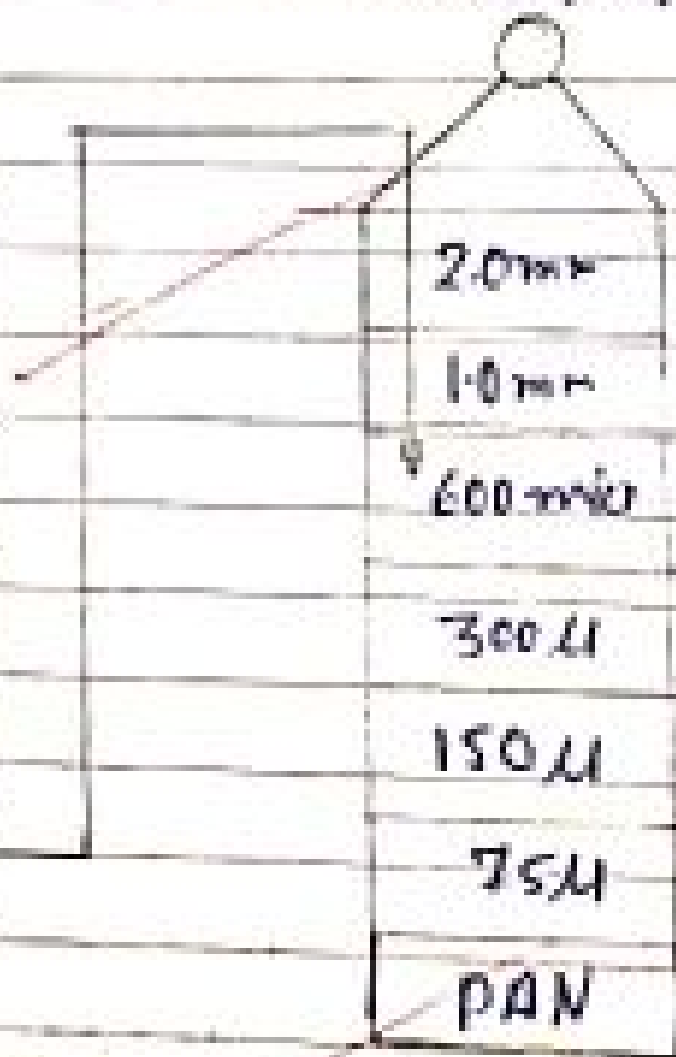 2.0mm
1.0mm
600 mic
300 μ
150 μ
75 μ
PAN